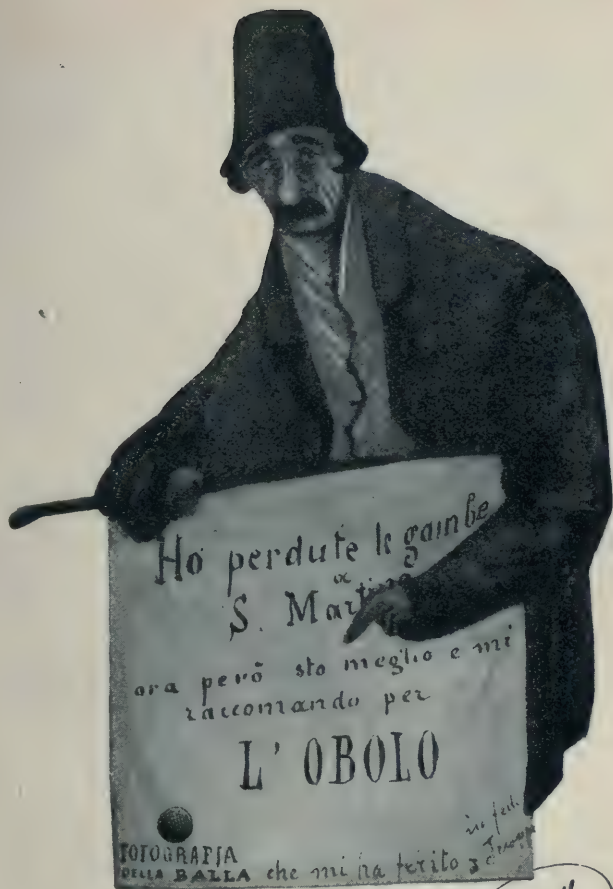 Ho perdute le gambe
a
S. Martino
ora però sto meglio e mi
raccomando per
L' OBOLO
FOTOGRAFIA
DELLA BALLA che mi ha ferito 3
in fede